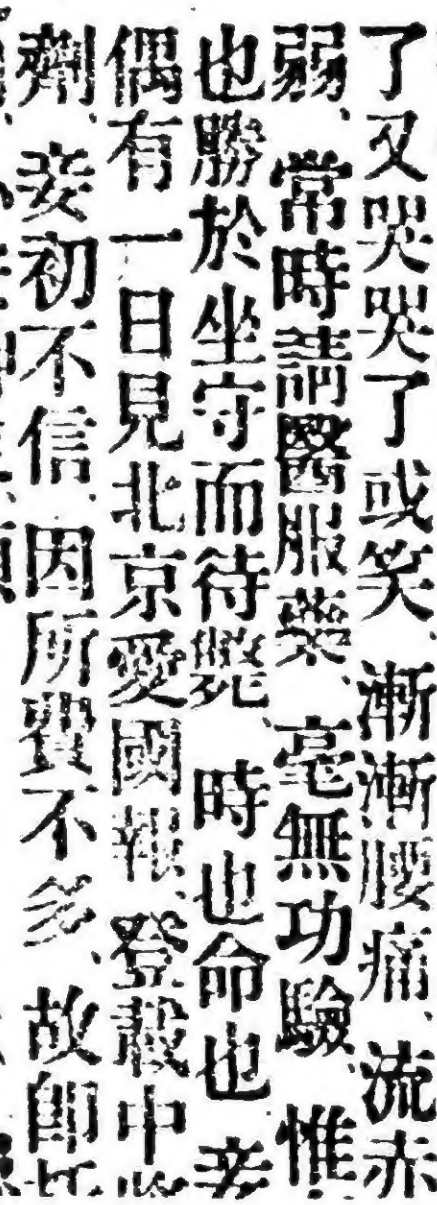 了又哭哭了或笑、漸漸腰痛、流赤
弱、常時請醫服藥、毫無功驗、惟
也勝於坐守而待斃、時也命也、妾
偶有一日見北京愛國報、登載中
劑、妾初不信、因所費不多、故即